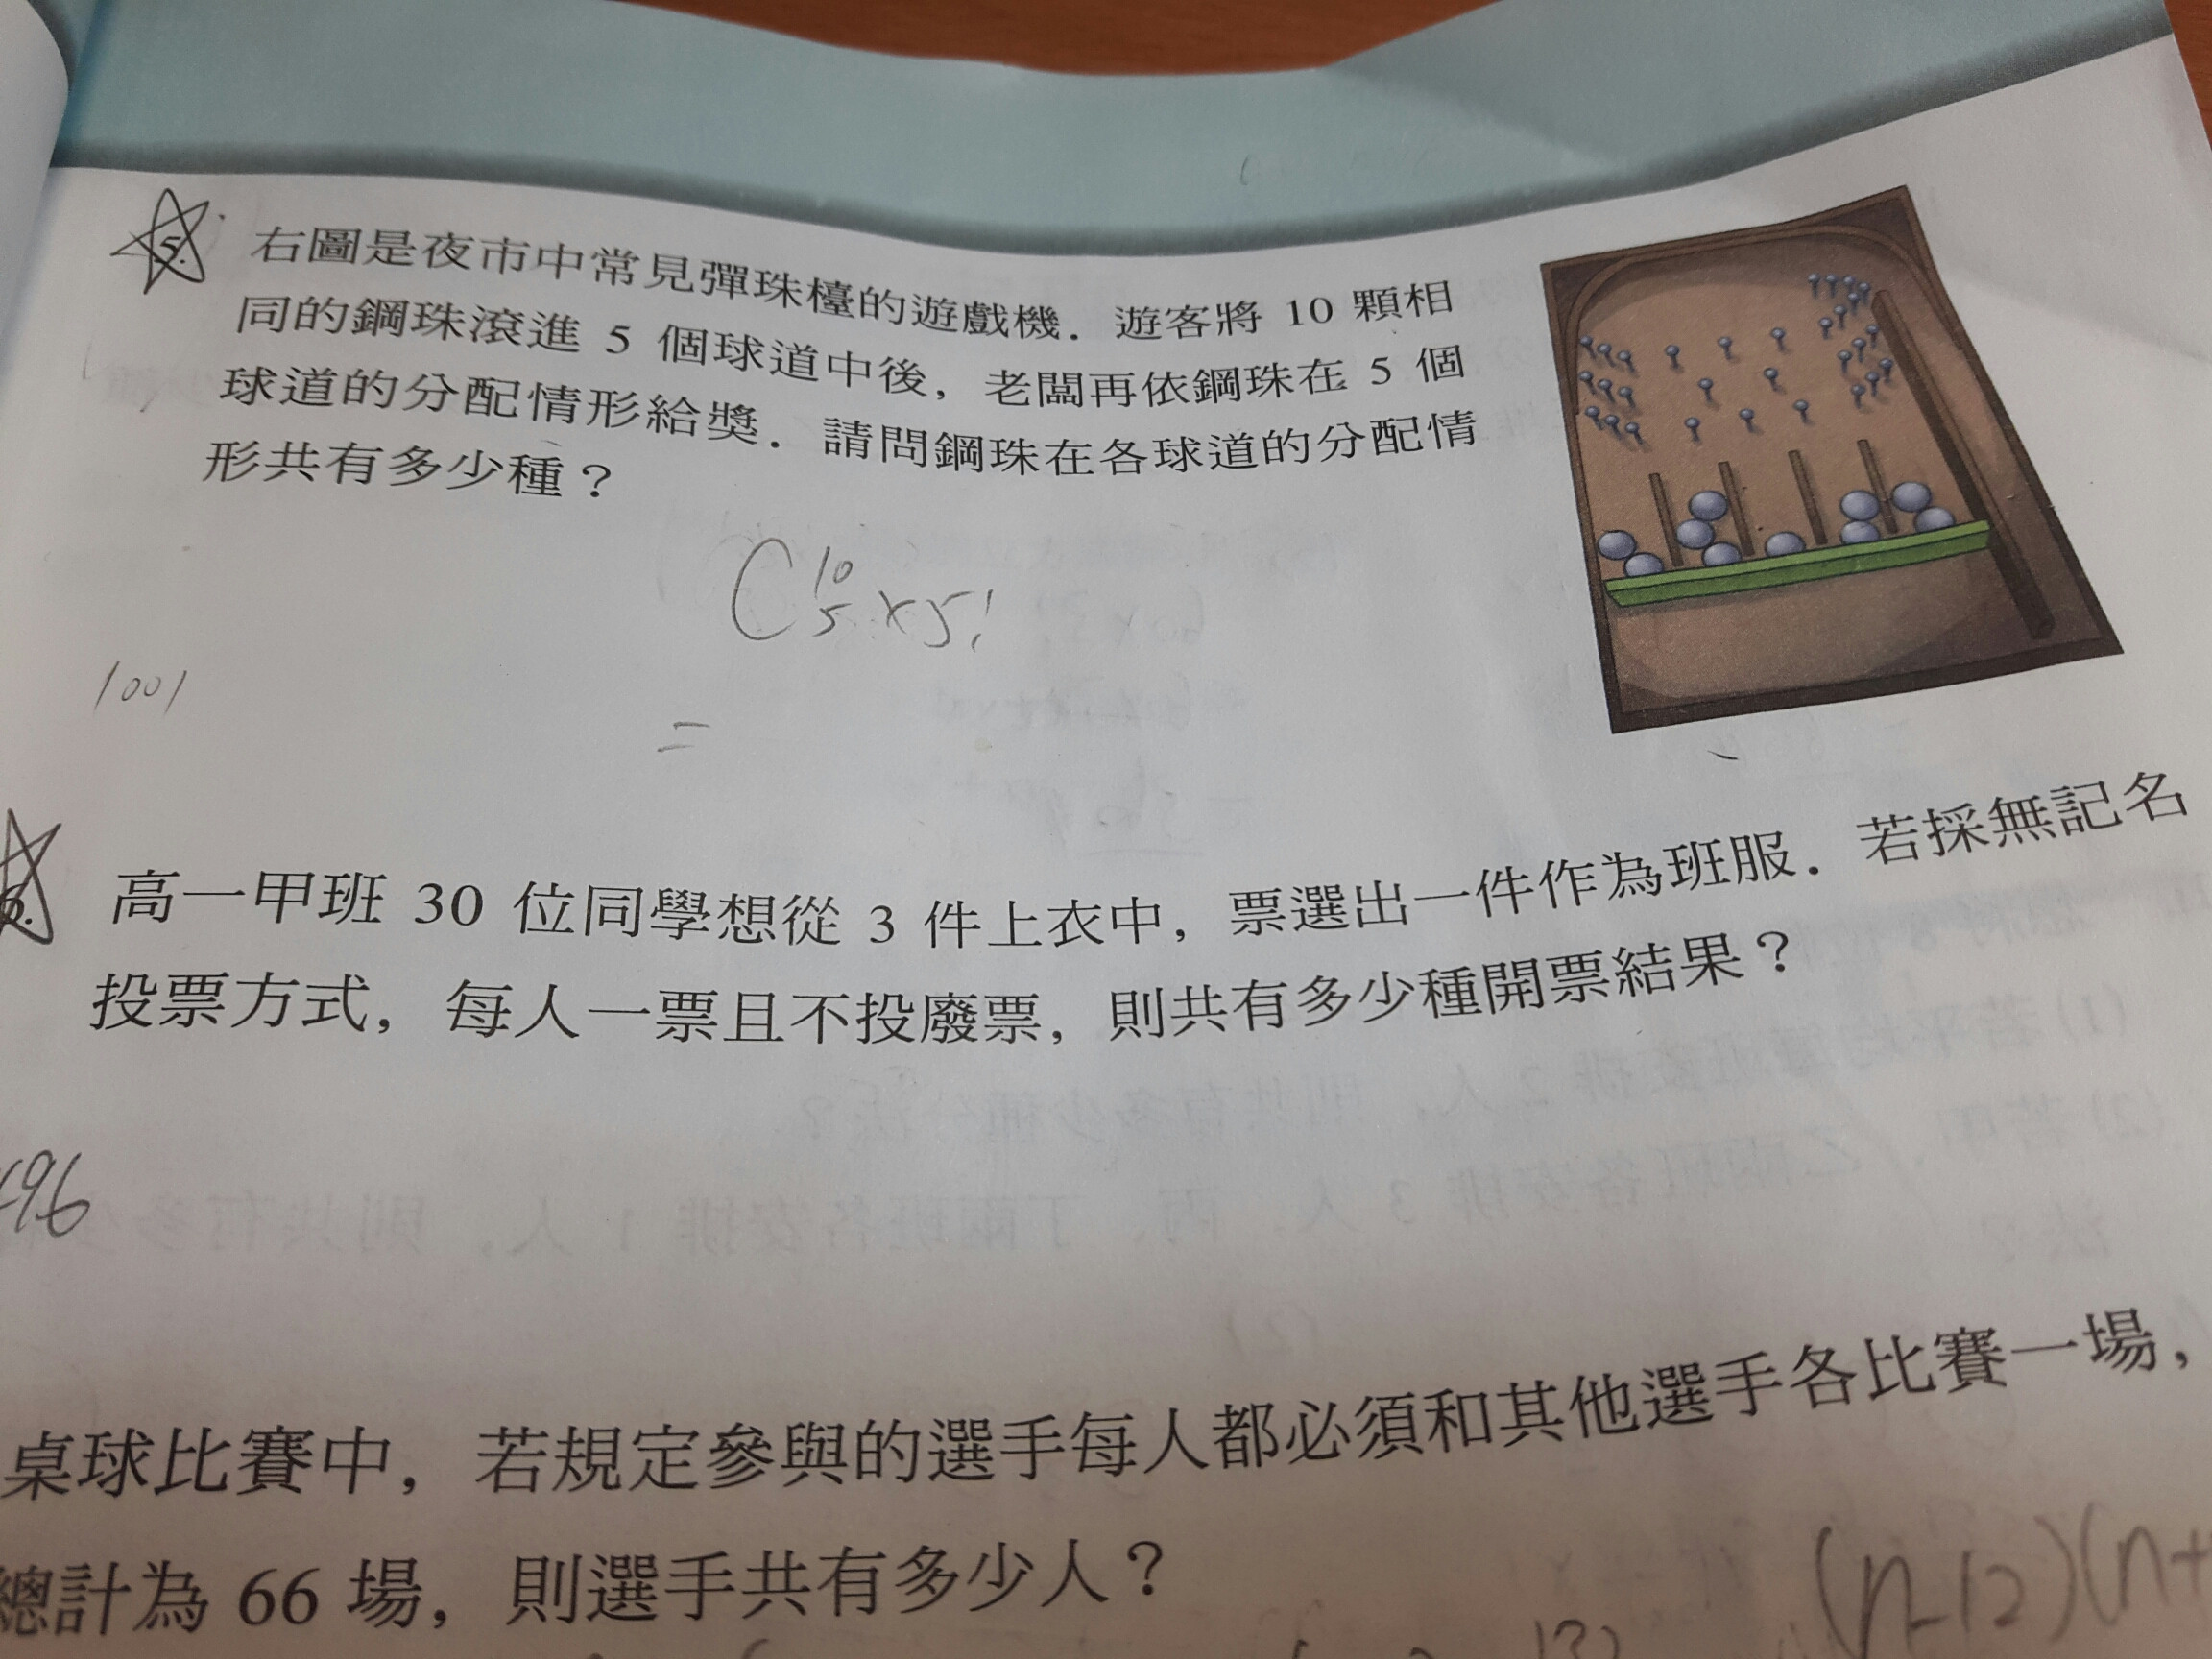 5.
右圖是夜市中常見彈珠檯的遊戲機．遊客將 10 顆相
同的鋼珠滾進 5 個球道中後，老闆再依鋼珠在 5 個
球道的分配情形給獎．請問鋼珠在各球道的分配情
形共有多少種？
C 10 5 × 5!
1001
=
高一甲班 30 位同學想從 3 件上衣中，票選出一件作為班服．若採無記名
投票方式，每人一票且不投廢票，則共有多少種開票結果？
496
桌球比賽中，若規定參與的選手每人都必須和其他選手各比賽一場，
總計為 66 場，則選手共有多少人？
(n-12)(n+